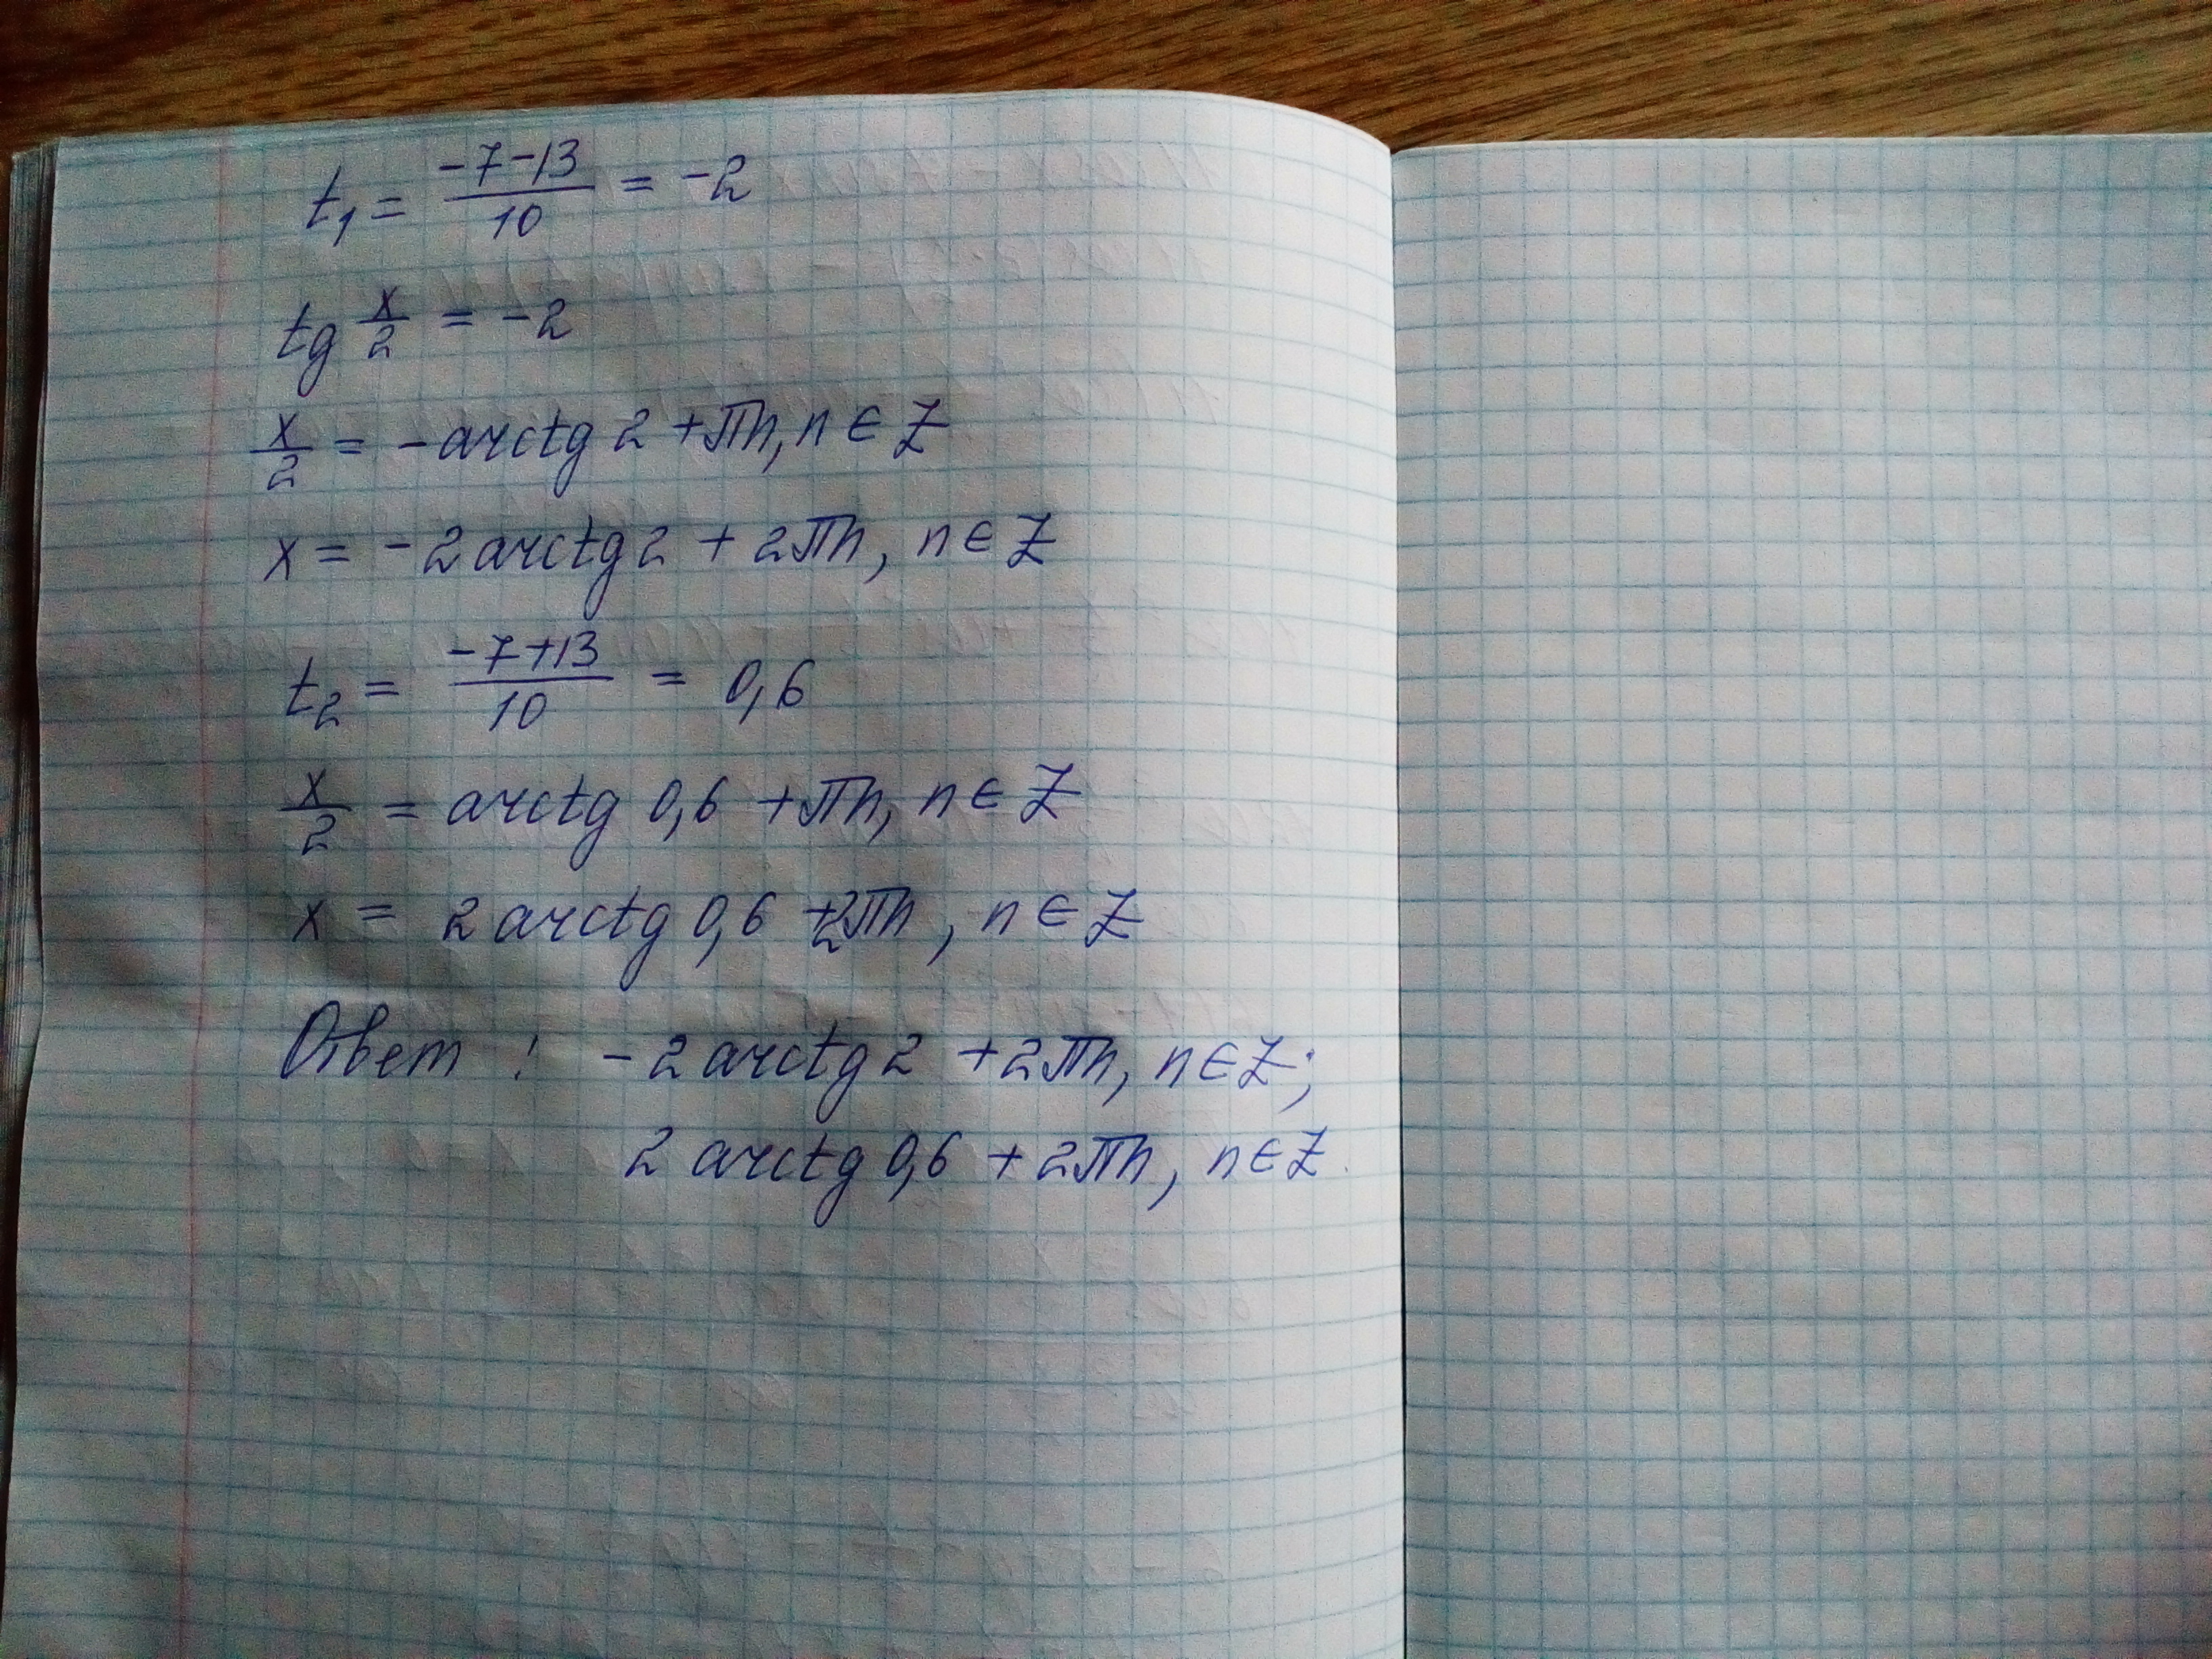 t₁ = (-7-13)/10 = -2
tg x/2 = -2
x/2 = -arctg 2 + πn, n ∈ Z
x = -2 arctg 2 + 2πn, n ∈ Z
t₂ = (-7+13)/10 = 0,6
x/2 = arctg 0,6 + πn, n ∈ Z
x = 2 arctg 0,6 + 2πn, n ∈ Z
Ответ: -2 arctg 2 + 2πn, n ∈ Z;
2 arctg 0,6 + 2πn, n ∈ Z.